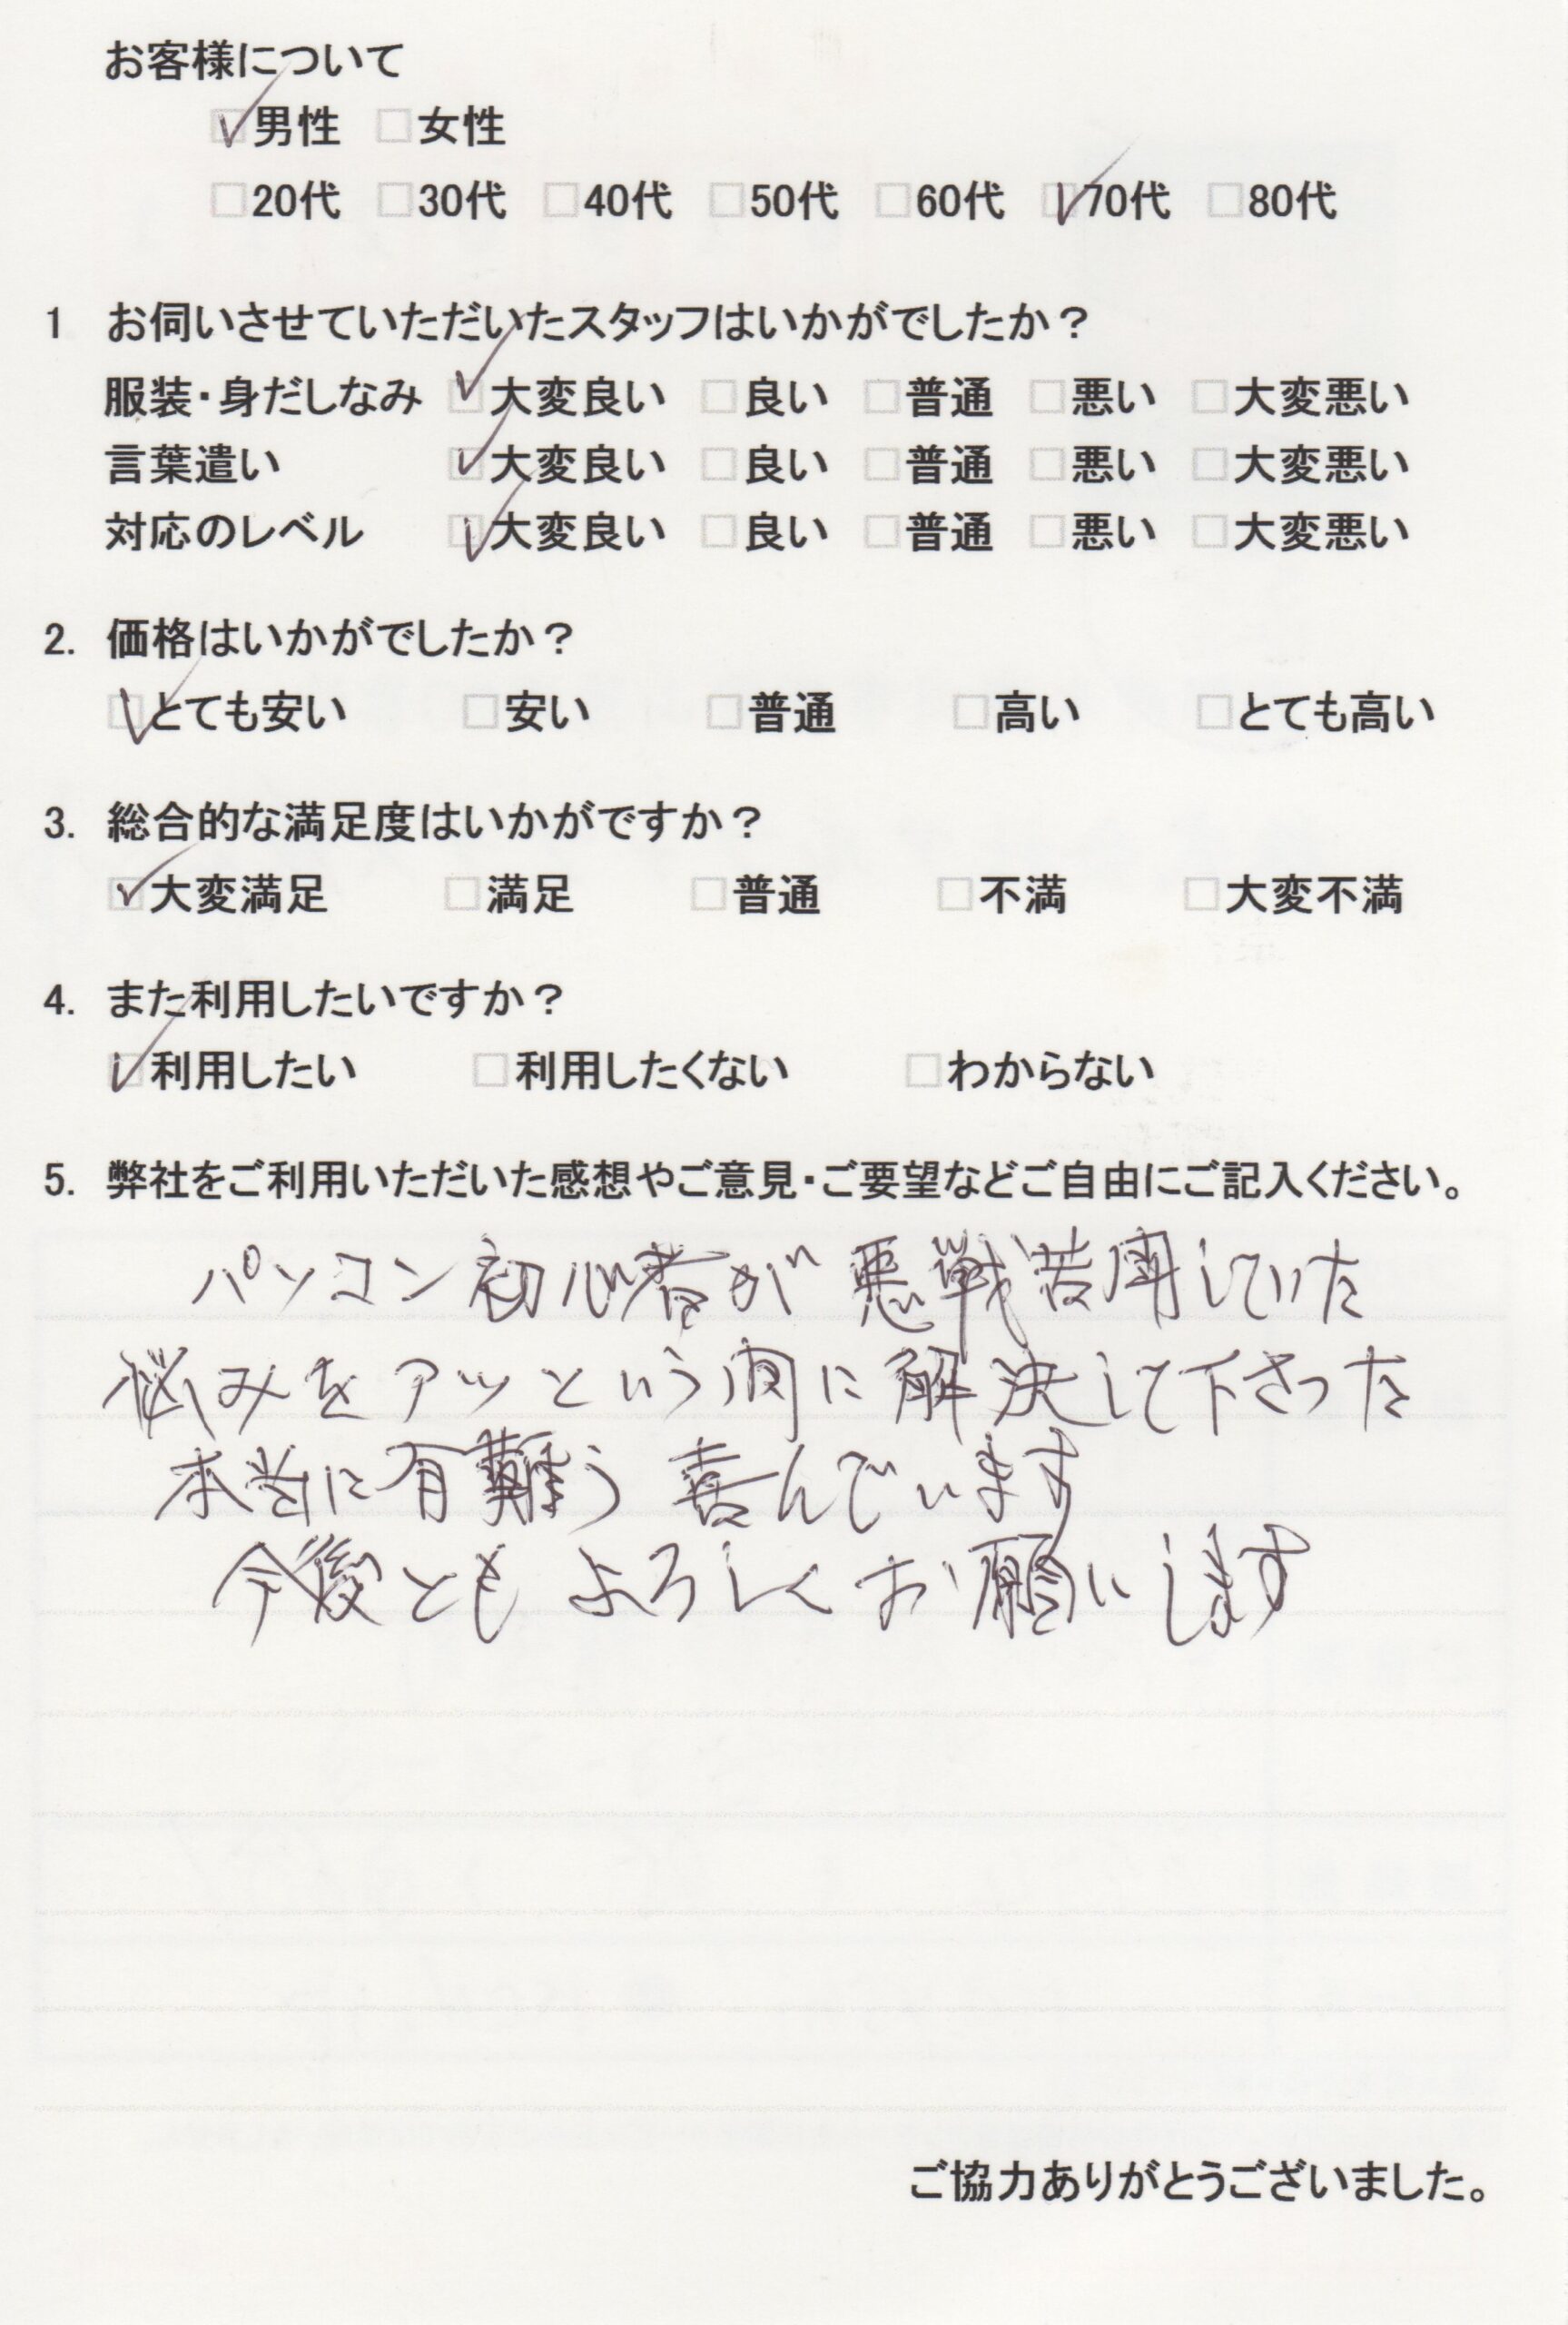 お客様について
☑男性 □女性
□20代 □30代 □40代 □50代 □60代 ☑70代 □80代
1 お伺いさせていただいたスタッフはいかがでしたか？
服装・身だしなみ ☑大変良い □良い □普通 □悪い □大変悪い
言葉遣い ☑大変良い □良い □普通 □悪い □大変悪い
対応のレベル ☑大変良い □良い □普通 □悪い □大変悪い
2. 価格はいかがでしたか？
☑とても安い □安い □普通 □高い □とても高い
3. 総合的な満足度はいかがですか？
☑大変満足 □満足 □普通 □不満 □大変不満
4. また利用したいですか？
☑利用したい □利用したくない □わからない
5. 弊社をご利用いただいた感想やご意見・ご要望などご自由にご記入ください。
パソコン初心者が悪戦苦闘していた
悩みをアッという間に解決して下さった
本当に有難う 喜んでいます
今後とも よろしくお願いします
ご協力ありがとうございました。